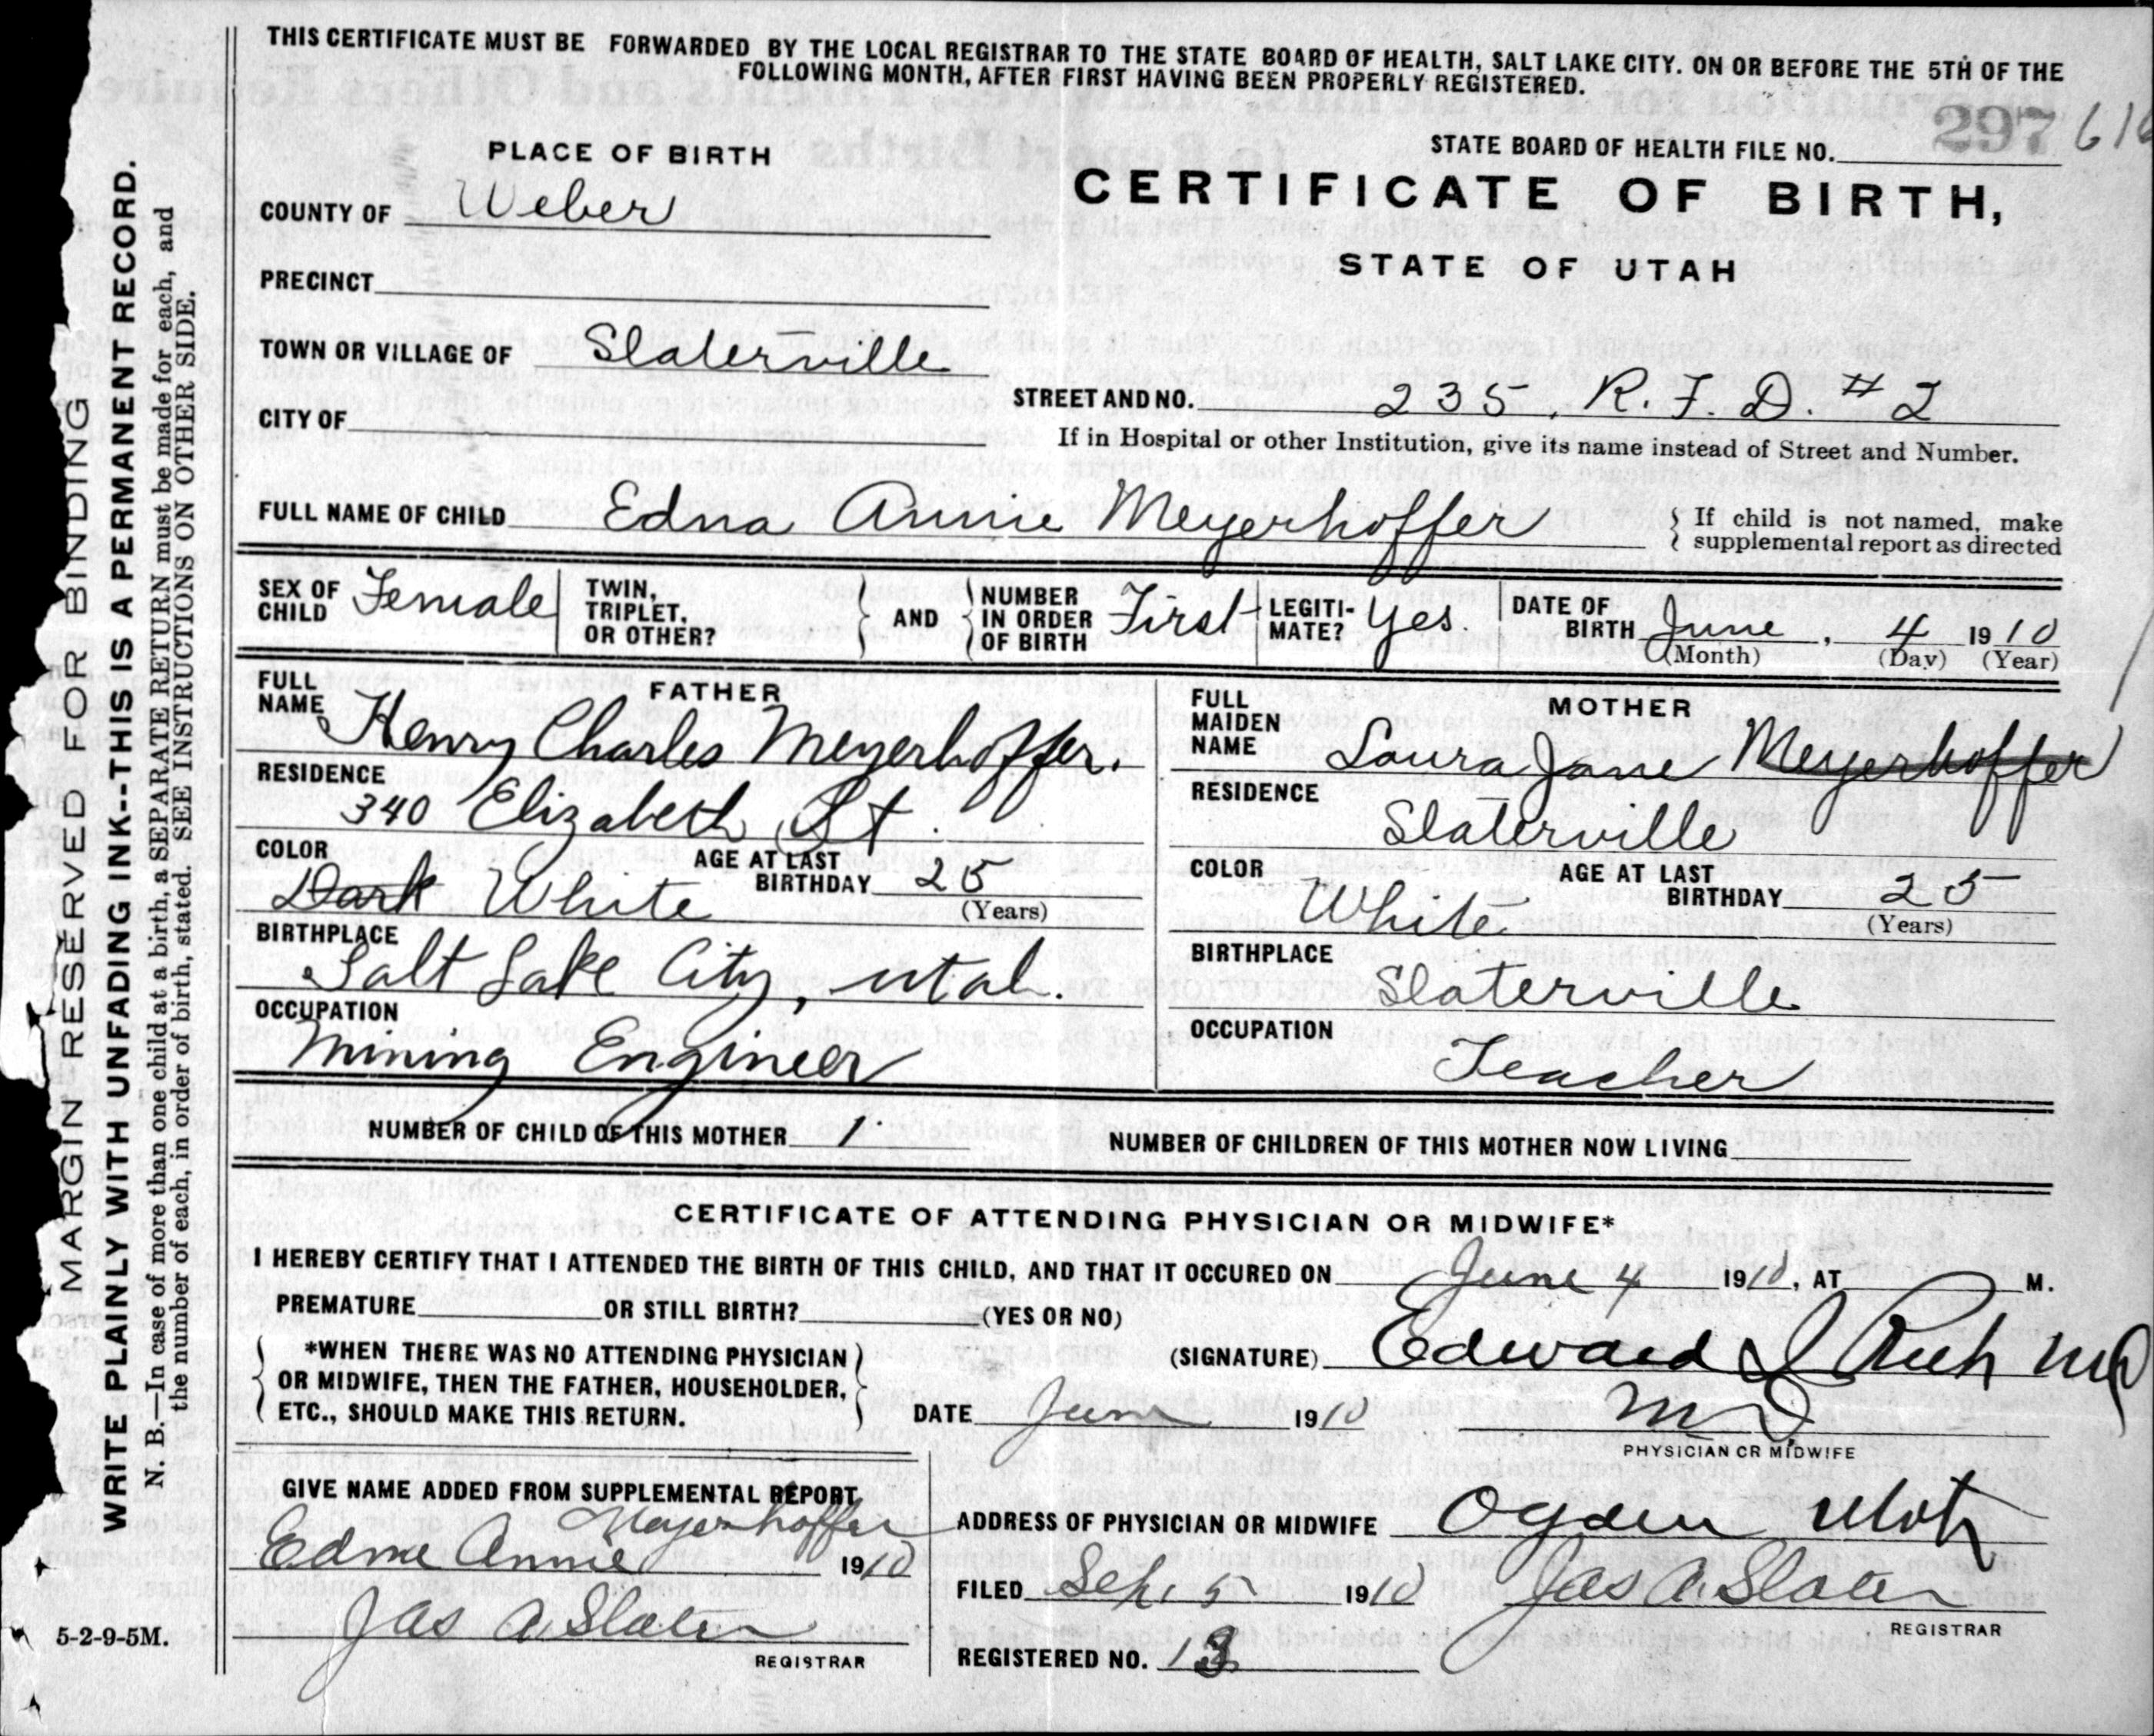 THIS CERTIFICATE MUST BE FORWARDED BY THE LOCAL REGISTRAR TO THE STATE BOARD OF HEALTH, SALT LAKE CITY. ON OR BEFORE THE 5TH OF THE
FOLLOWING MONTH, AFTER FIRST HAVING BEEN PROPERLY REGISTERED.
MARGIN RESERVED FOR BINDING
WRITE PLAINLY WITH UNFADING INK--THIS IS A PERMANENT RECORD.
N. B.—In case of more than one child at a birth, a SEPARATE RETURN must be made for each, and
the number of each, in order of birth, stated. SEE INSTRUCTIONS ON OTHER SIDE.
PLACE OF BIRTH
STATE BOARD OF HEALTH FILE NO. 297
CERTIFICATE OF BIRTH,
STATE OF UTAH
COUNTY OF Weber
PRECINCT
TOWN OR VILLAGE OF Slaterville
STREET AND NO. 235, R.F.D. #2
CITY OF
If in Hospital or other Institution, give its name instead of Street and Number.
FULL NAME OF CHILD Edna Annie Meyerhoffer
{ If child is not named, make
supplemental report as directed
SEX OF CHILD Female
TWIN, TRIPLET, OR OTHER?
} AND {
NUMBER IN ORDER OF BIRTH First
LEGITI-MATE? Yes.
DATE OF BIRTH June, 4 1910
(Month) (Day) (Year)
FATHER
FULL NAME Henry Charles Meyerhoffer.
RESIDENCE
340 Elizabeth St.
COLOR
Dark White
AGE AT LAST BIRTHDAY 25
(Years)
BIRTHPLACE
Salt Lake City, Utah.
OCCUPATION
Mining Engineer
MOTHER
FULL MAIDEN NAME Laura Jane Meyerhoffer
RESIDENCE
Slaterville
COLOR
White
AGE AT LAST BIRTHDAY 25
(Years)
BIRTHPLACE
Slaterville
OCCUPATION
Teacher
NUMBER OF CHILD OF THIS MOTHER 1
NUMBER OF CHILDREN OF THIS MOTHER NOW LIVING
CERTIFICATE OF ATTENDING PHYSICIAN OR MIDWIFE*
I HEREBY CERTIFY THAT I ATTENDED THE BIRTH OF THIS CHILD, AND THAT IT OCCURED ON June 4 1910, AT M.
PREMATURE OR STILL BIRTH? (YES OR NO)
*WHEN THERE WAS NO ATTENDING PHYSICIAN
OR MIDWIFE, THEN THE FATHER, HOUSEHOLDER,
ETC., SHOULD MAKE THIS RETURN.
(SIGNATURE) Edward I Rich MD
DATE June 1910
MD
PHYSICIAN OR MIDWIFE
GIVE NAME ADDED FROM SUPPLEMENTAL REPORT
Meyerhoffer
Edna Annie 1910
Jas A Slater
REGISTRAR
ADDRESS OF PHYSICIAN OR MIDWIFE Ogden Utah
FILED Sept 5 1910 Jas A Slater
REGISTRAR
REGISTERED NO. 13
5-2-9-5M.